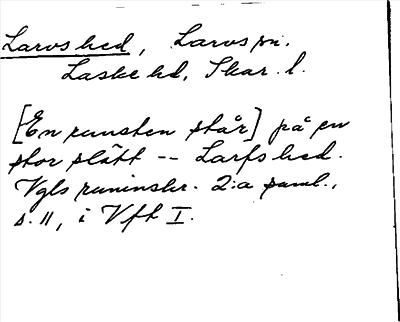 Larvs hed, Larvs sn.
Laske hd, Skar. l.
[En runsten står] på en
stor slätt -- Larfs hed.
Vgls runinskr. 2:a saml.,
s. 11, i Vft I.